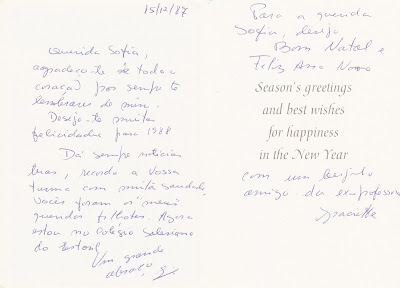 15/12/87
Querida Sofia,
agradeço-te de todo o
coração por sempre te
lembrares de mim.
Desejo-te muitas
felicidades para 1988
Dá sempre notícias
tuas, recordo a vossa
turma com muita saudade,
vocês foram os meus
queridos filhotes. Agora
estou no Colégio Salesiano
do Estoril
Um grande
abraço,
Para a querida
Sofia, desejo
Bom Natal e
Feliz Ano Novo
Season's greetings
and best wishes
for happiness
in the New Year
com um beijinho
amigo da ex-professora